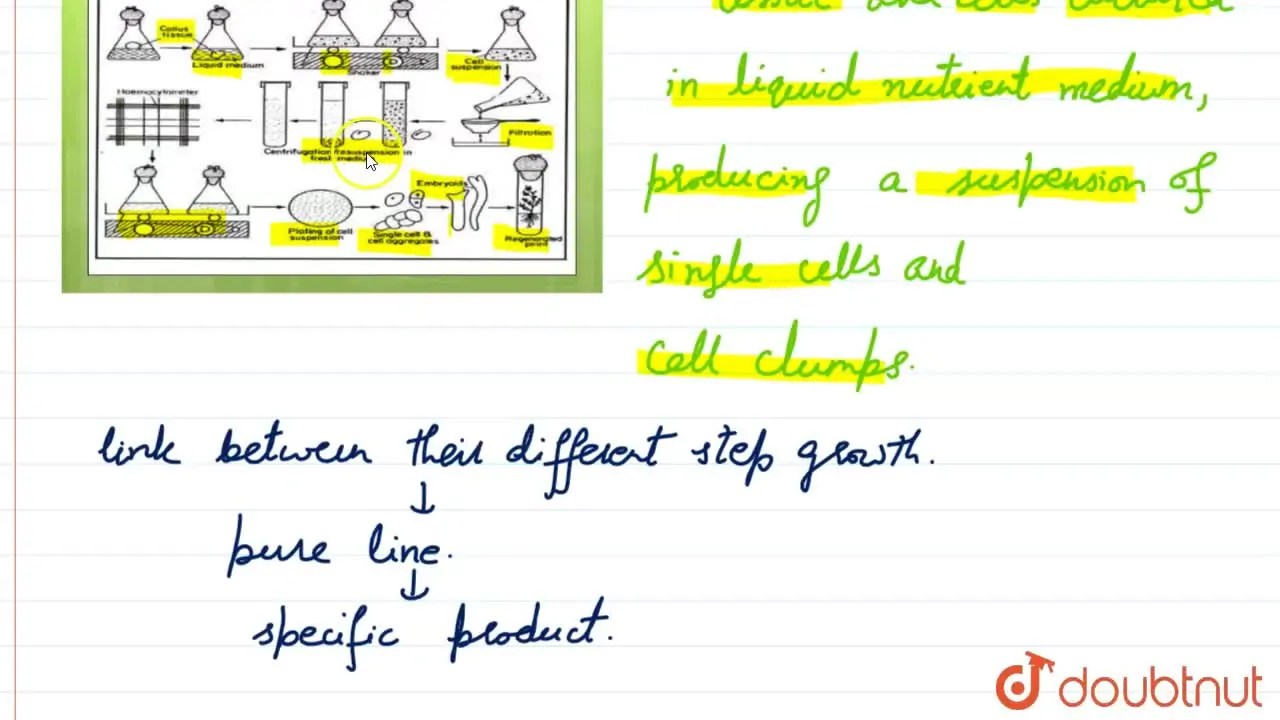 Callus
tissue
Liquid medium
Shaker
Cell
suspension
Haemacytometer
Centrifugation
resuspension in
fresh medium
Filtration
Plating of cell
suspension
Single cell &
cell aggregates
Embryoids
Regenerated
plant
in liquid nutrient medium,
producing a suspension of
single cells and
cell clumps.
link between their different step growth.
↓
pure line.
↓
specific product.
doubtnut